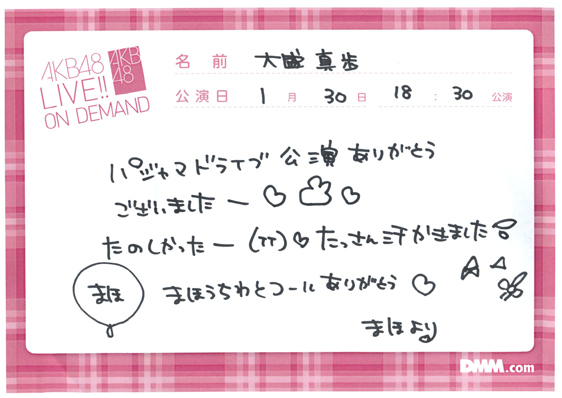 AKB48
LIVE!!
ON DEMAND
AKB
48
名前 大盛真歩
公演日 1月30日 18:30公演
パジャマドライブ 公演 ありがとう
ございましたー♡ ♡
たのしかったー(TT)♡たっさん汗かきました
まほ
まほうちわとコールありがとう♡
まほより
DMM.com